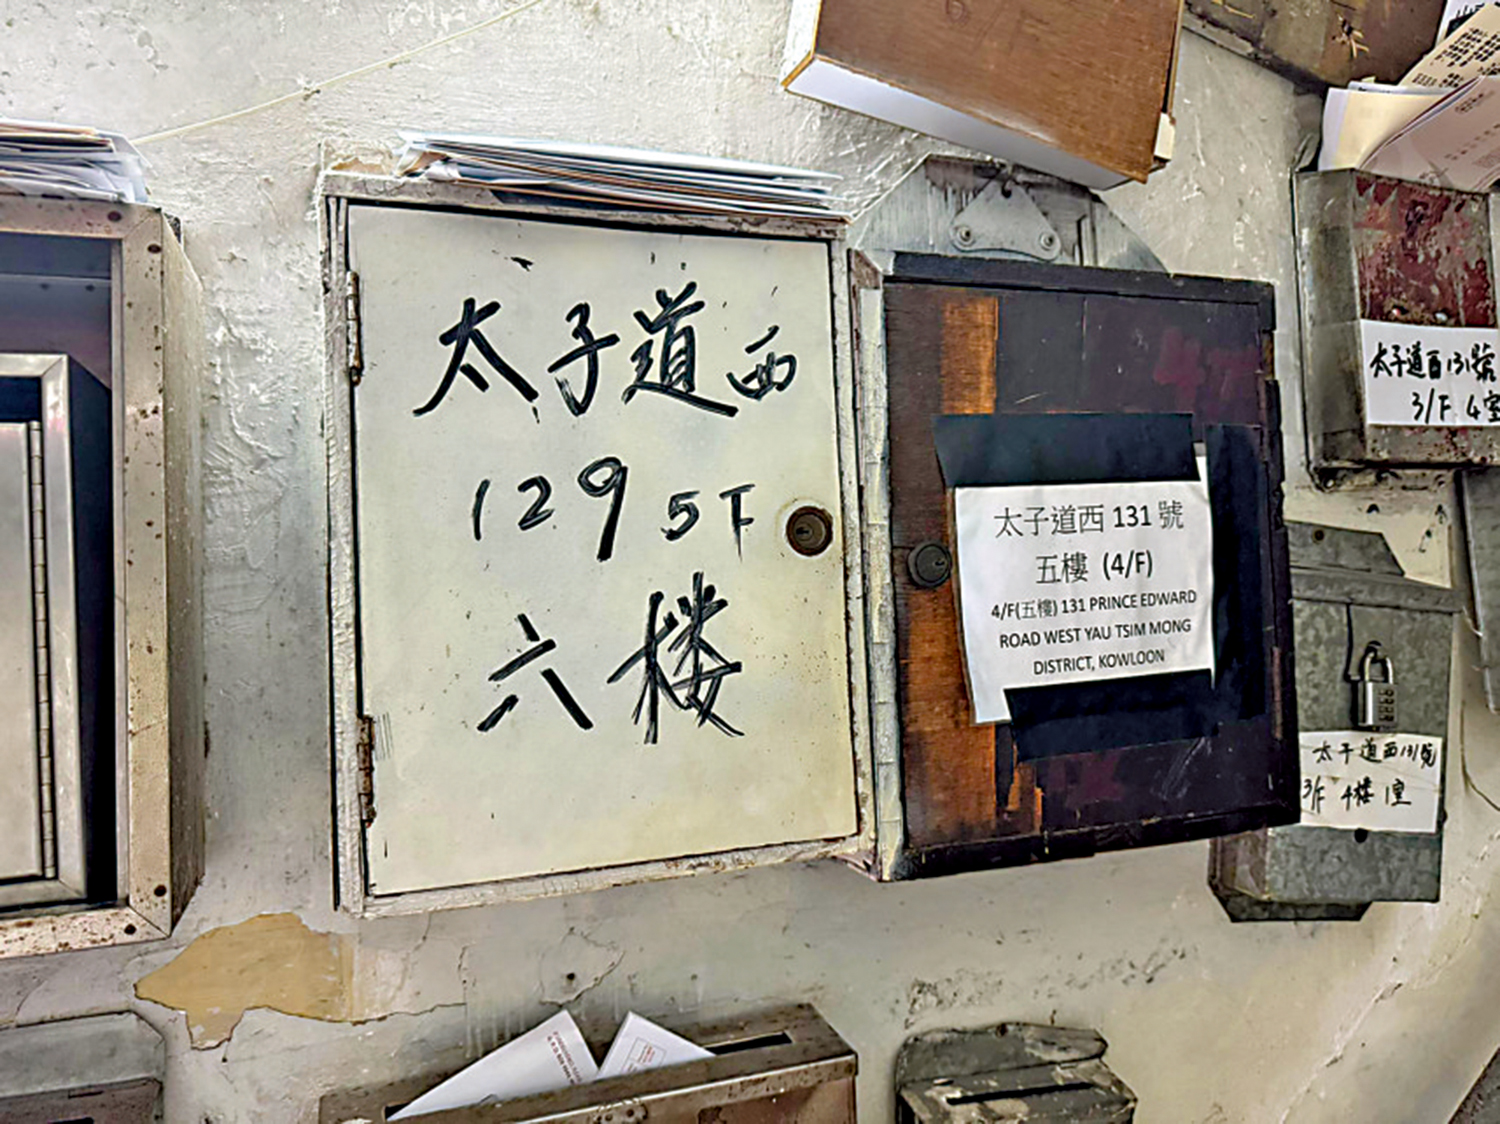 太子道西
129 5F
六楼
太子道西 131 號
五樓 (4/F)
4/F(五樓) 131 PRINCE EDWARD
ROAD WEST YAU TSIM MONG
DISTRICT, KOWLOON
太子道西131號
3/F 4室
太子道西131號
3/F 4樓 1室